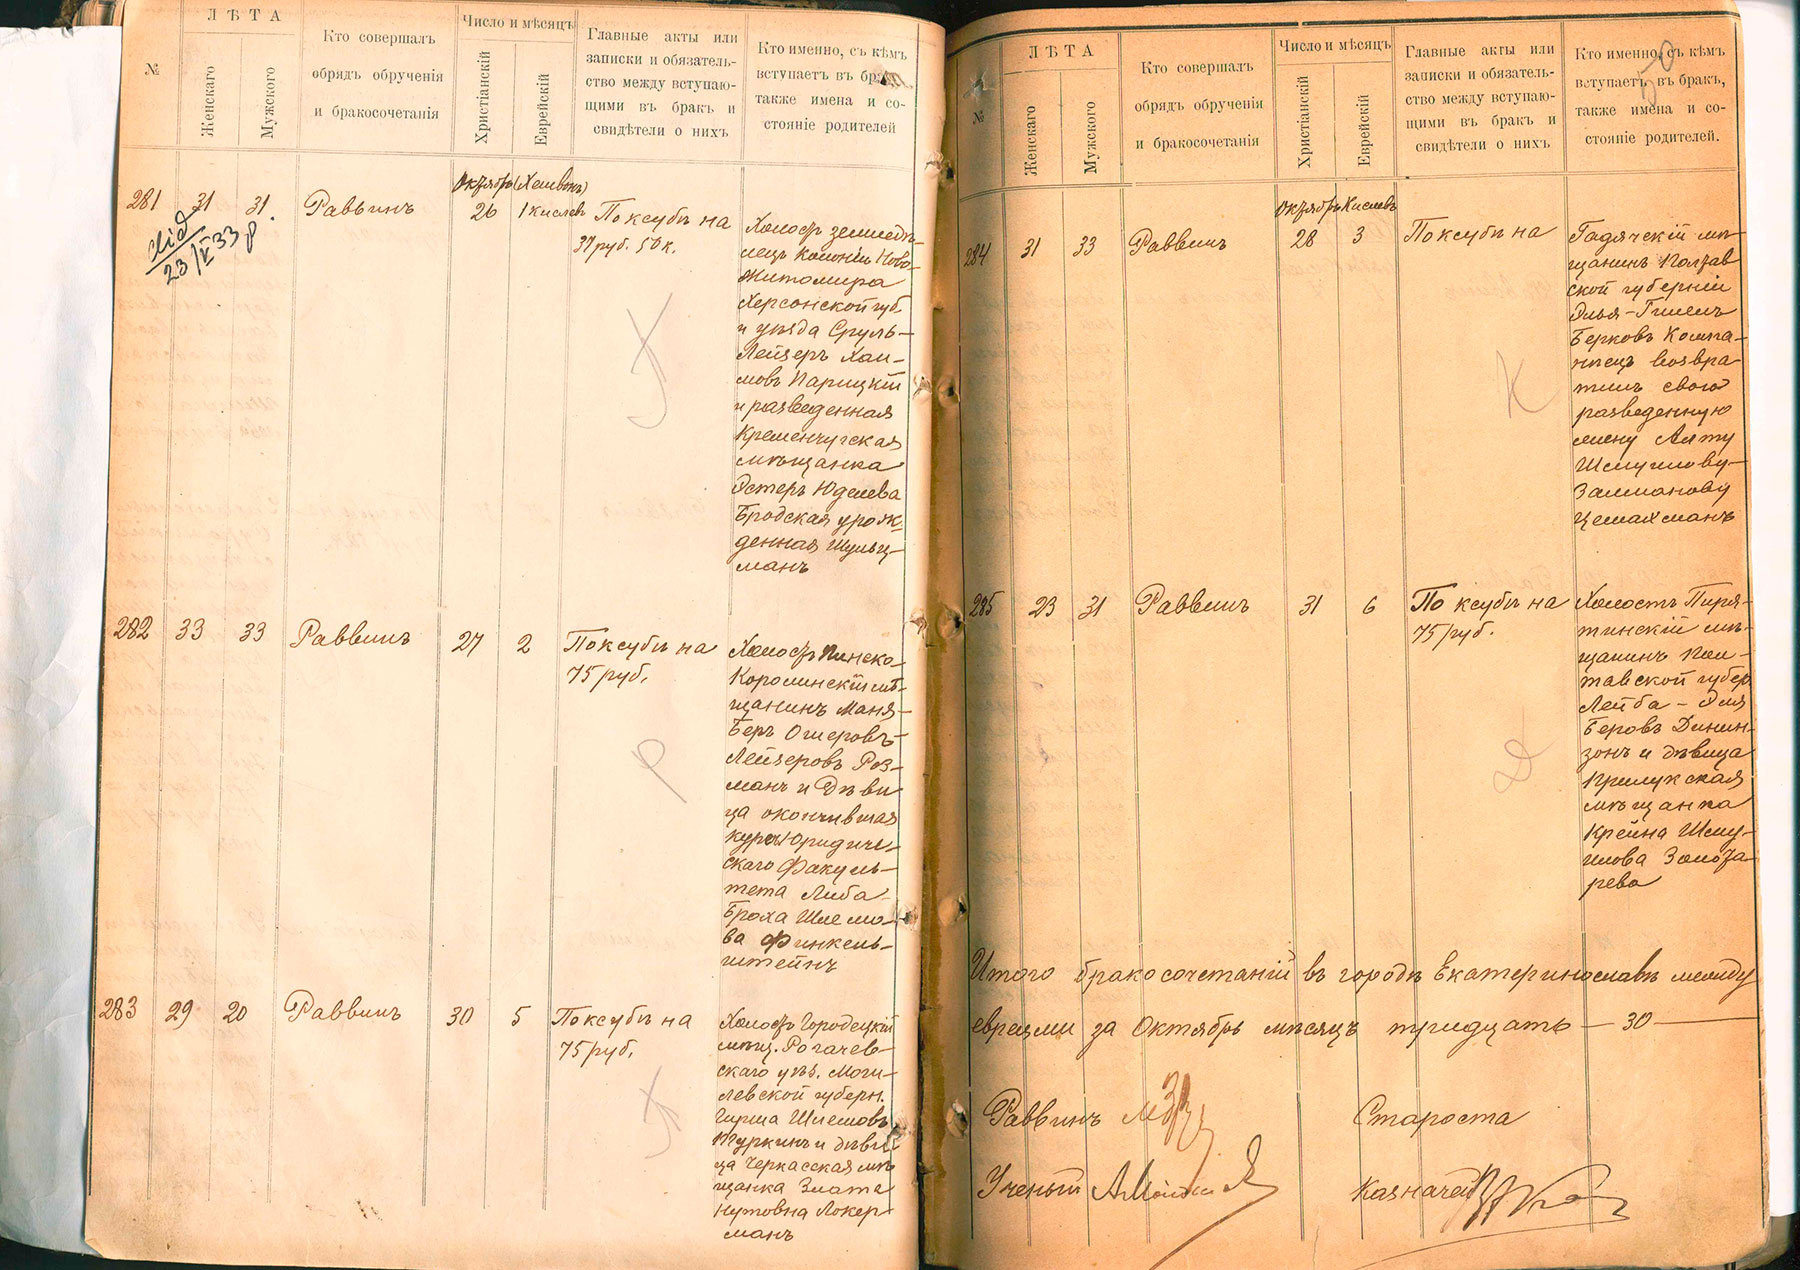 ЛѢТА
№
Женскаго
Мужского
Кто совершалъ
обрядъ обрученія
и бракосочетанія
Число и мѣсяцъ
Христіанскій
Еврейскій
Главные акты или
записки и обязатель-
ство между вступаю-
щими въ бракъ и
свидѣтели о нихъ
Кто именно, съ кѣмъ
вступаетъ въ бракъ,
также имена и со-
стояніе родителей
281 31 31 Раввинъ
Октябрь (Хешванъ)
26 1 Кислевъ
По ксубѣ на
37 руб. 50 к.
23/VI 33 р.
Холостъ земледѣ-
лецъ колоніи Ново-
житомира
Херсонской губ.
и уѣзда Сруль-
Лейзеръ Хаи-
мовъ Парицкій
и разведенная
Кременчугская
мѣщанка
Эстеръ Юделева
Бродская урож-
денная Шульц-
манъ
У
282 33 33 Раввинъ 27 2 По ксубѣ на
75 руб.
Холостъ Пинско-
Королинскій мѣ-
щанинъ Маня-
Беръ Ошеровъ-
Лейзеровъ Роз-
манъ и дѣви
ца окончившая
курсъ Юридиче-
скаго Факуль-
тета Либа-
Броха Шлемо-
ва Финкель-
штейнъ
Р
283 29 20 Раввинъ 30 5 По ксубѣ на
75 руб.
Холостъ Городецкій
мѣщ. Рогачев-
скаго уѣз. Моги-
левской губерн.
Гирша Шлемовъ
Туркинъ и дѣви
ца Черкасская мѣ
щанка Злата
Нутовна Локер
манъ
ЛѢТА
№
Женскаго
Мужского
Кто совершалъ
обрядъ обрученія
и бракосочетанія
Число и мѣсяцъ
Христіанскій
Еврейскій
Главные акты или
записки и обязатель-
ство между вступаю-
щими въ бракъ и
свидѣтели о нихъ
Кто именно, съ кѣмъ
вступаетъ въ бракъ,
также имена и со-
стояніе родителей.
284 31 33 Раввинъ
Октябрь Кислевъ
28 3
По ксубѣ на
Гадячскій мѣ-
щанинъ Полтав
ской губерніи
Элья-Гилель
Берковъ Компа-
нѣецъ возвра-
тилъ свою
разведенную
жену Алту
Шмуилову-
Залманову
Цемахманъ
К
285 23 31 Раввинъ 31 6 По ксубѣ на
75 руб.
Холостъ Пиря-
тинскій мѣ-
щанинъ Пол-
тавской губер.
Лейба-Эля
Беровъ Динин-
зонъ и дѣвица
Прилукская
мѣщанка
Крейна Шму-
илова Золота
рева
Д
Итого бракосочетаній въ городѣ Екатеринославѣ между
евреями за Октябрь мѣсяцъ тридцать — 30 —
Раввинъ Староста
Ученый Казначей